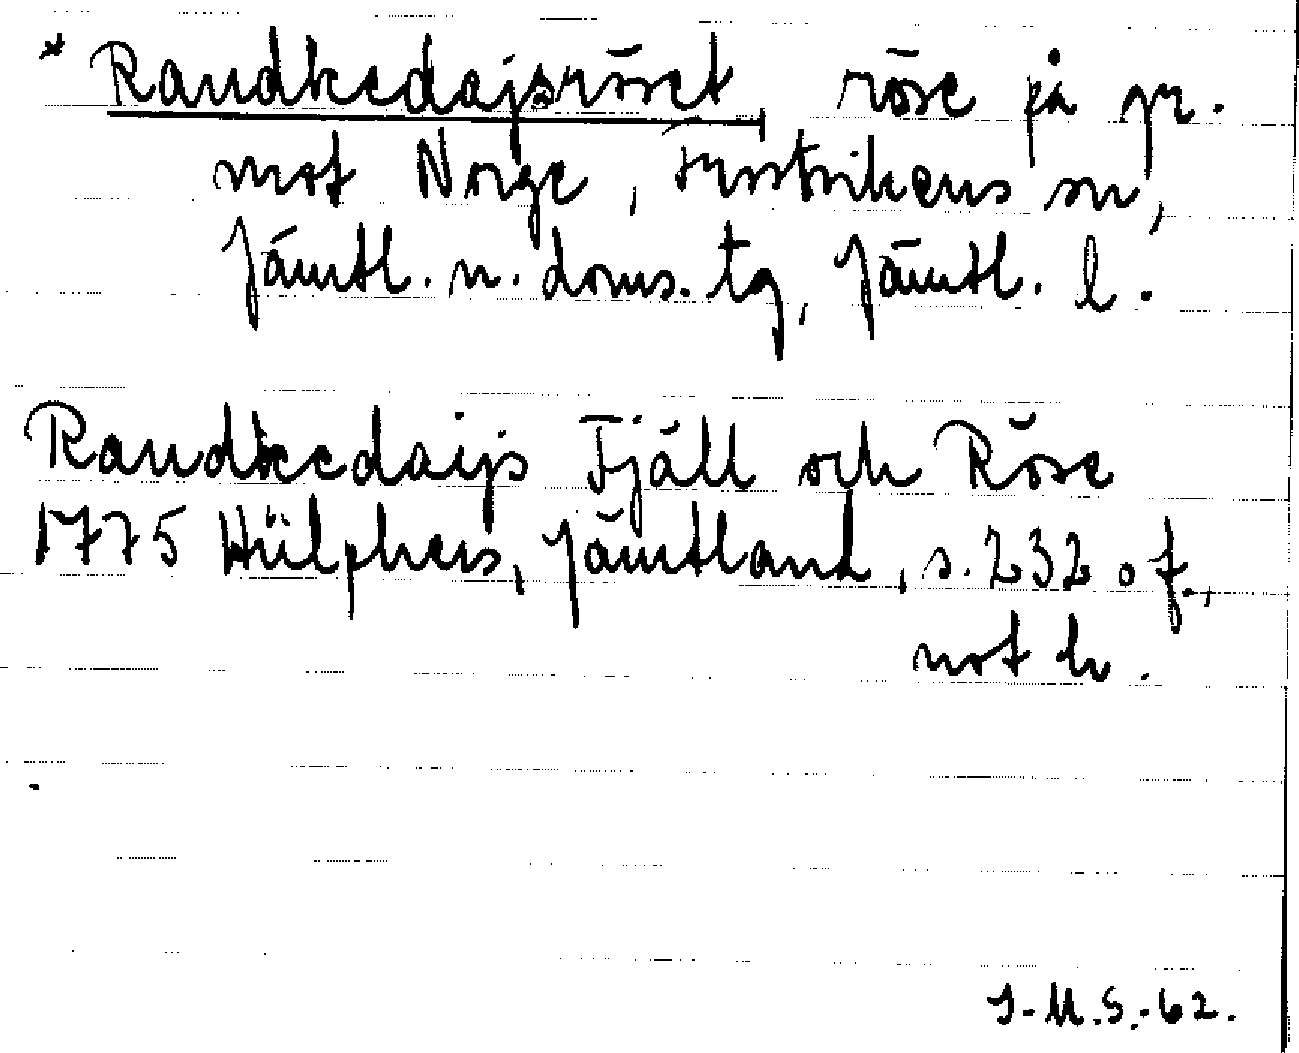 * Raudkedajsröset röse på gr.
mot Norge, Frostvikens sn,
Jämtl. n. doms. tg, Jämtl. l.
Raudkedaijs Fjäll och Röse
1775 Hülphers, Jämtland, s. 232 o f.,
not h.
I-M.S.-62.